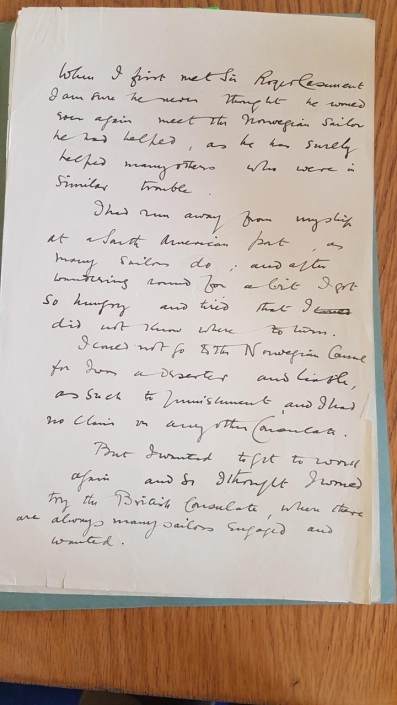 When I first met Sir Roger Casement
I am sure he never thought he would
ever again meet the Norwegian Sailor
he had helped, as he has surely
helped many others who were in
Similar trouble.
I had run away from my ship
at a South American port, as
many Sailors do; and after
wandering round for a bit I got
so hungry and tired that I could
did not know where to turn.
I could not go to the Norwegian Consul
for I was a deserter and liable,
as such to punishment, and I had
no claim on any other Consulate.
But I wanted to get to work
again and so I thought I would
try the British Consulate, where there
are always many sailors engaged and
wanted.